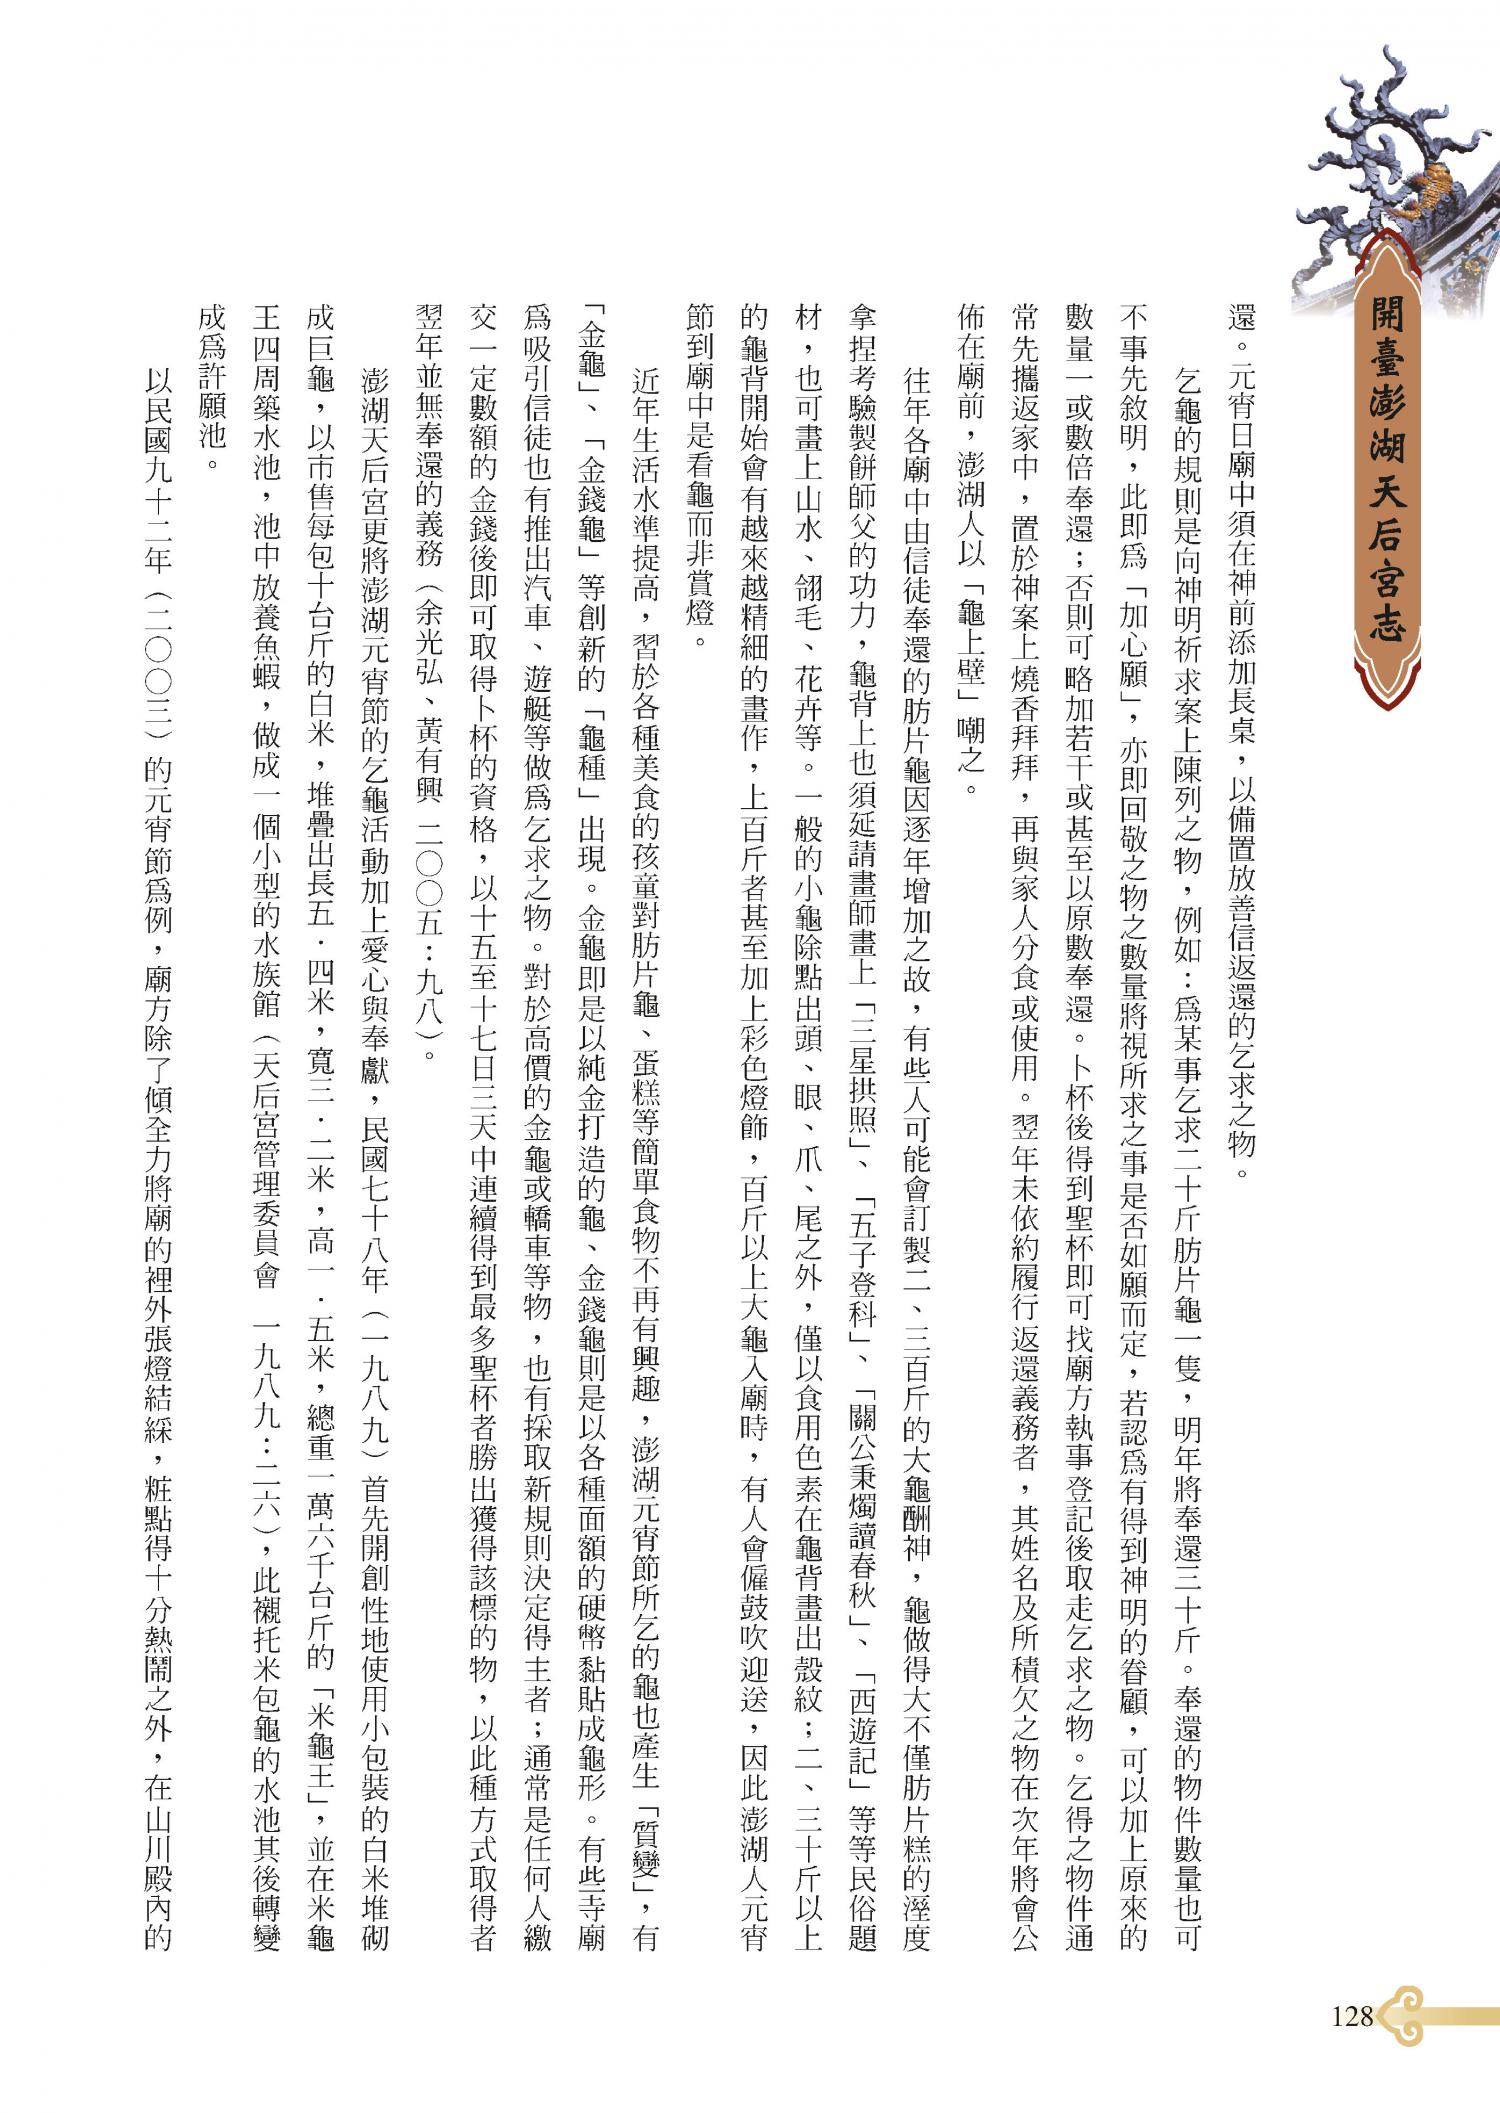 開臺澎湖天后宮志
還。元宵日廟中須在神前添加長桌，以備置放善信返還的乞求之物。
乞龜的規則是向神明祈求案上陳列之物，例如：為某事乞求二十斤肪片龜一隻，明年將奉還三十斤。奉還的物件數量也可
不事先敘明，此即為「加心願」，亦即回敬之物之數量將視所求之事是否如願而定，若認為有得到神明的眷顧，可以加上原來的
數量一或數倍奉還；否則可略加若干或甚至以原數奉還。卜杯後得到聖杯即可找廟方執事登記後取走乞求之物。乞得之物件通
常先攜返家中，置於神案上燒香拜拜，再與家人分食或使用。翌年未依約履行返還義務者，其姓名及所積欠之物在次年將會公
佈在廟前，澎湖人以「龜上壁」嘲之。
往年各廟中由信徒奉還的肪片龜因逐年增加之故，有些人可能會訂製二、三百斤的大龜酬神，龜做得大不僅肪片糕的溼度
拿捏考驗製餅師父的功力，龜背上也須延請畫師畫上「三星拱照」、「五子登科」、「關公秉燭讀春秋」、「西遊記」等等民俗題
材，也可畫上山水、翎毛、花卉等。一般的小龜除點出頭、眼、爪、尾之外，僅以食用色素在龜背畫出殼紋；二、三十斤以上
的龜背開始會有越來越精細的畫作，上百斤者甚至加上彩色燈飾，百斤以上大龜入廟時，有人會僱鼓吹迎送，因此澎湖人元宵
節到廟中是看龜而非賞燈。
近年生活水準提高，習於各種美食的孩童對肪片龜、蛋糕等簡單食物不再有興趣，澎湖元宵節所乞的龜也產生「質變」，有
「金龜」、「金錢龜」等創新的「龜種」出現。金龜即是以純金打造的龜、金錢龜則是以各種面額的硬幣黏貼成龜形。有些寺廟
為吸引信徒也有推出汽車、遊艇等做為乞求之物。對於高價的金龜或轎車等物，也有採取新規則決定得主者；通常是任何人繳
交一定數額的金錢後即可取得卜杯的資格，以十五至十七日三天中連續得到最多聖杯者勝出獲得該標的物，以此種方式取得者
翌年並無奉還的義務（余光弘、黃有興 二〇〇五：九八）。
澎湖天后宮更將澎湖元宵節的乞龜活動加上愛心與奉獻，民國七十八年（一九八九）首先開創性地使用小包裝的白米堆砌
成巨龜，以市售每包十台斤的白米，堆疊出長五．四米，寬三．二米，高一．五米，總重一萬六千台斤的「米龜王」，並在米龜
王四周築水池，池中放養魚蝦，做成一個小型的水族館（天后宮管理委員會 一九八九：二六），此襯托米包龜的水池其後轉變
成為許願池。
以民國九十二年（二〇〇三）的元宵節為例，廟方除了傾全力將廟的裡外張燈結綵，粧點得十分熱鬧之外，在山川殿內的
128